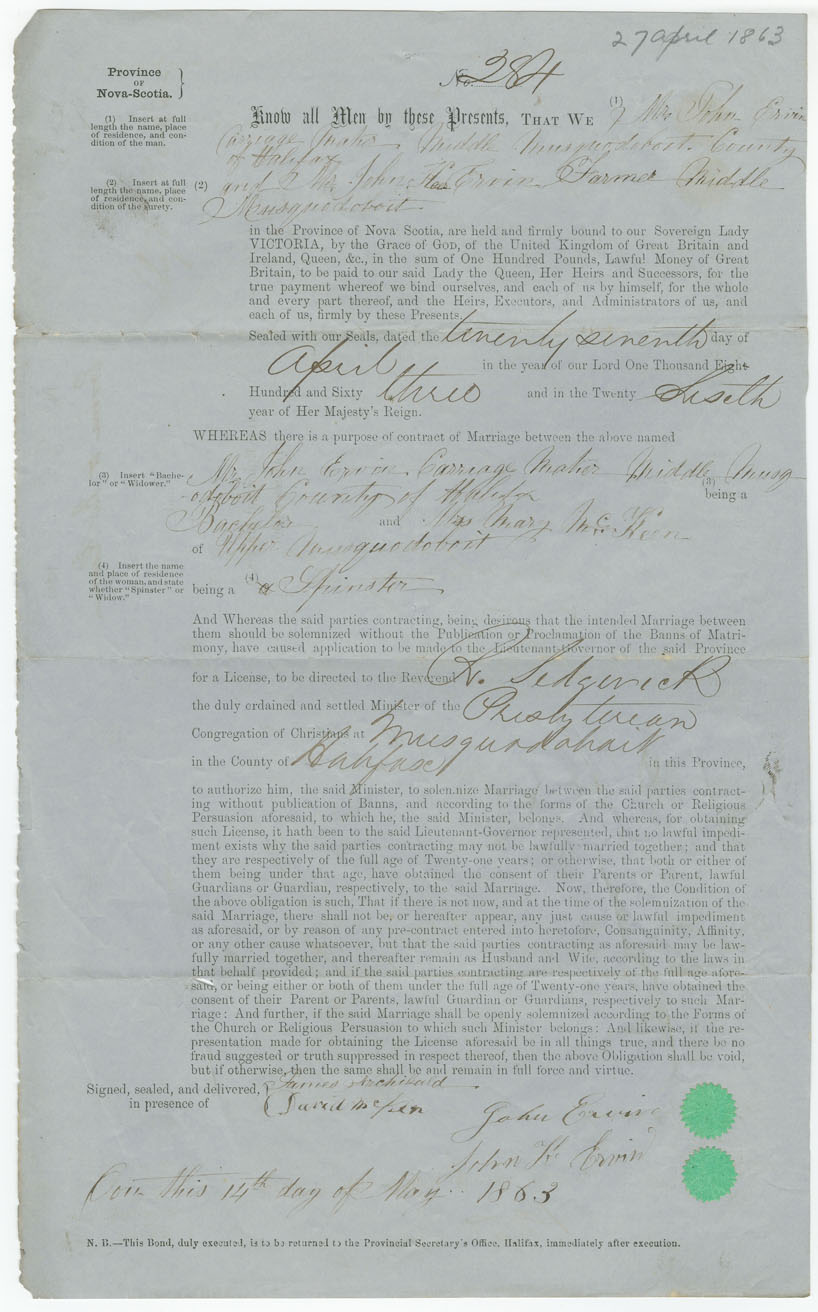 27 April 1863
Province
OF
Nova-Scotia.
No. 284
(1) Insert at full length the name, place of residence, and condition of the man.
Know all Men by these Presents, THAT WE (1) Mr. John Ervin
Carriage Maker Middle Musquodoboit County
of Halifax
(2) Insert at full length the name, place of residence, and condition of the surety.
(2) and Mr John Ervin Farmer Middle
Musquodoboit
in the Province of Nova Scotia, are held and firmly bound to our Sovereign Lady
VICTORIA, by the Grace of GOD, of the United Kingdom of Great Britain and
Ireland, Queen, &c., in the sum of One Hundred Pounds, Lawful Money of Great
Britain, to be paid to our said Lady the Queen, Her Heirs and Successors, for the
true payment whereof we bind ourselves, and each of us by himself, for the whole
and every part thereof, and the Heirs, Executors, and Administrators of us, and
each of us, firmly by these Presents.
Sealed with our Seals, dated the twenty seventh day of
April in the year of our Lord One Thousand Eight
Hundred and Sixty three and in the Twenty Sixth
year of Her Majesty's Reign.
WHEREAS there is a purpose of contract of Marriage between the above named
(3) Insert "Bachelor" or "Widower."
Mr. John Ervin Carriage Maker Middle Musq
-odoboit County of Halifax (3) being a
Bachelor and Mary McKeen
of Upper Musquodoboit
(4) Insert the name and place of residence of the woman, and state whether "Spinster" or "Widow."
being a (4) a Spinster
And Whereas the said parties contracting, being desirous that the intended Marriage between
them should be solemnized without the Publication or Proclamation of the Banns of Matri-
mony, have caused application to be made to the Lieutenant-Governor of the said Province
for a License, to be directed to the Reverend R. Sedgewick
the duly ordained and settled Minister of the Presbyterian
Congregation of Christians at Musquodoboit
in the County of Halifax in this Province,
to authorize him, the said Minister, to solemnize Marriage between the said parties contract-
ing without publication of Banns, and according to the forms of the Church or Religious
Persuasion aforesaid, to which he, the said Minister, belongs. And whereas, for obtaining
such License, it hath been to the said Lieutenant-Governor represented, that no lawful impedi-
ment exists why the said parties contracting may not be lawfully married together; and that
they are respectively of the full age of Twenty-one years; or otherwise, that both or either of
them being under that age, have obtained the consent of their Parents or Parent, lawful
Guardians or Guardian, respectively, to the said Marriage. Now, therefore, the Condition of
the above obligation is such, That if there is not now, and at the time of the solemnization of the
said Marriage, there shall not be, or hereafter appear, any just cause or lawful impediment
as aforesaid, or by reason of any pre-contract entered into heretofore, Consanguinity, Affinity,
or any other cause whatsoever, but that the said parties contracting as aforesaid may be law-
fully married together, and thereafter remain as Husband and Wife, according to the laws in
that behalf provided; and if the said parties contracting are respectively of the full age afore-
said, or being either or both of them under the full age of Twenty-one years, have obtained the
consent of their Parent or Parents, lawful Guardian or Guardians, respectively to such Mar-
riage: And further, if the said Marriage shall be openly solemnized according to the Forms of
the Church or Religious Persuasion to which such Minister belongs: And likewise, if the re-
presentation made for obtaining the License aforesaid be in all things true, and there be no
fraud suggested or truth suppressed in respect thereof, then the above Obligation shall be void,
but if otherwise, then the same shall be and remain in full force and virtue.
Signed, sealed, and delivered, James Archibald
in presence of David McKeen
John Ervin
John K Ervin
this 14th day of May 1863
N. B.—This Bond, duly executed, is to be returned to the Provincial Secretary's Office, Halifax, immediately after execution.